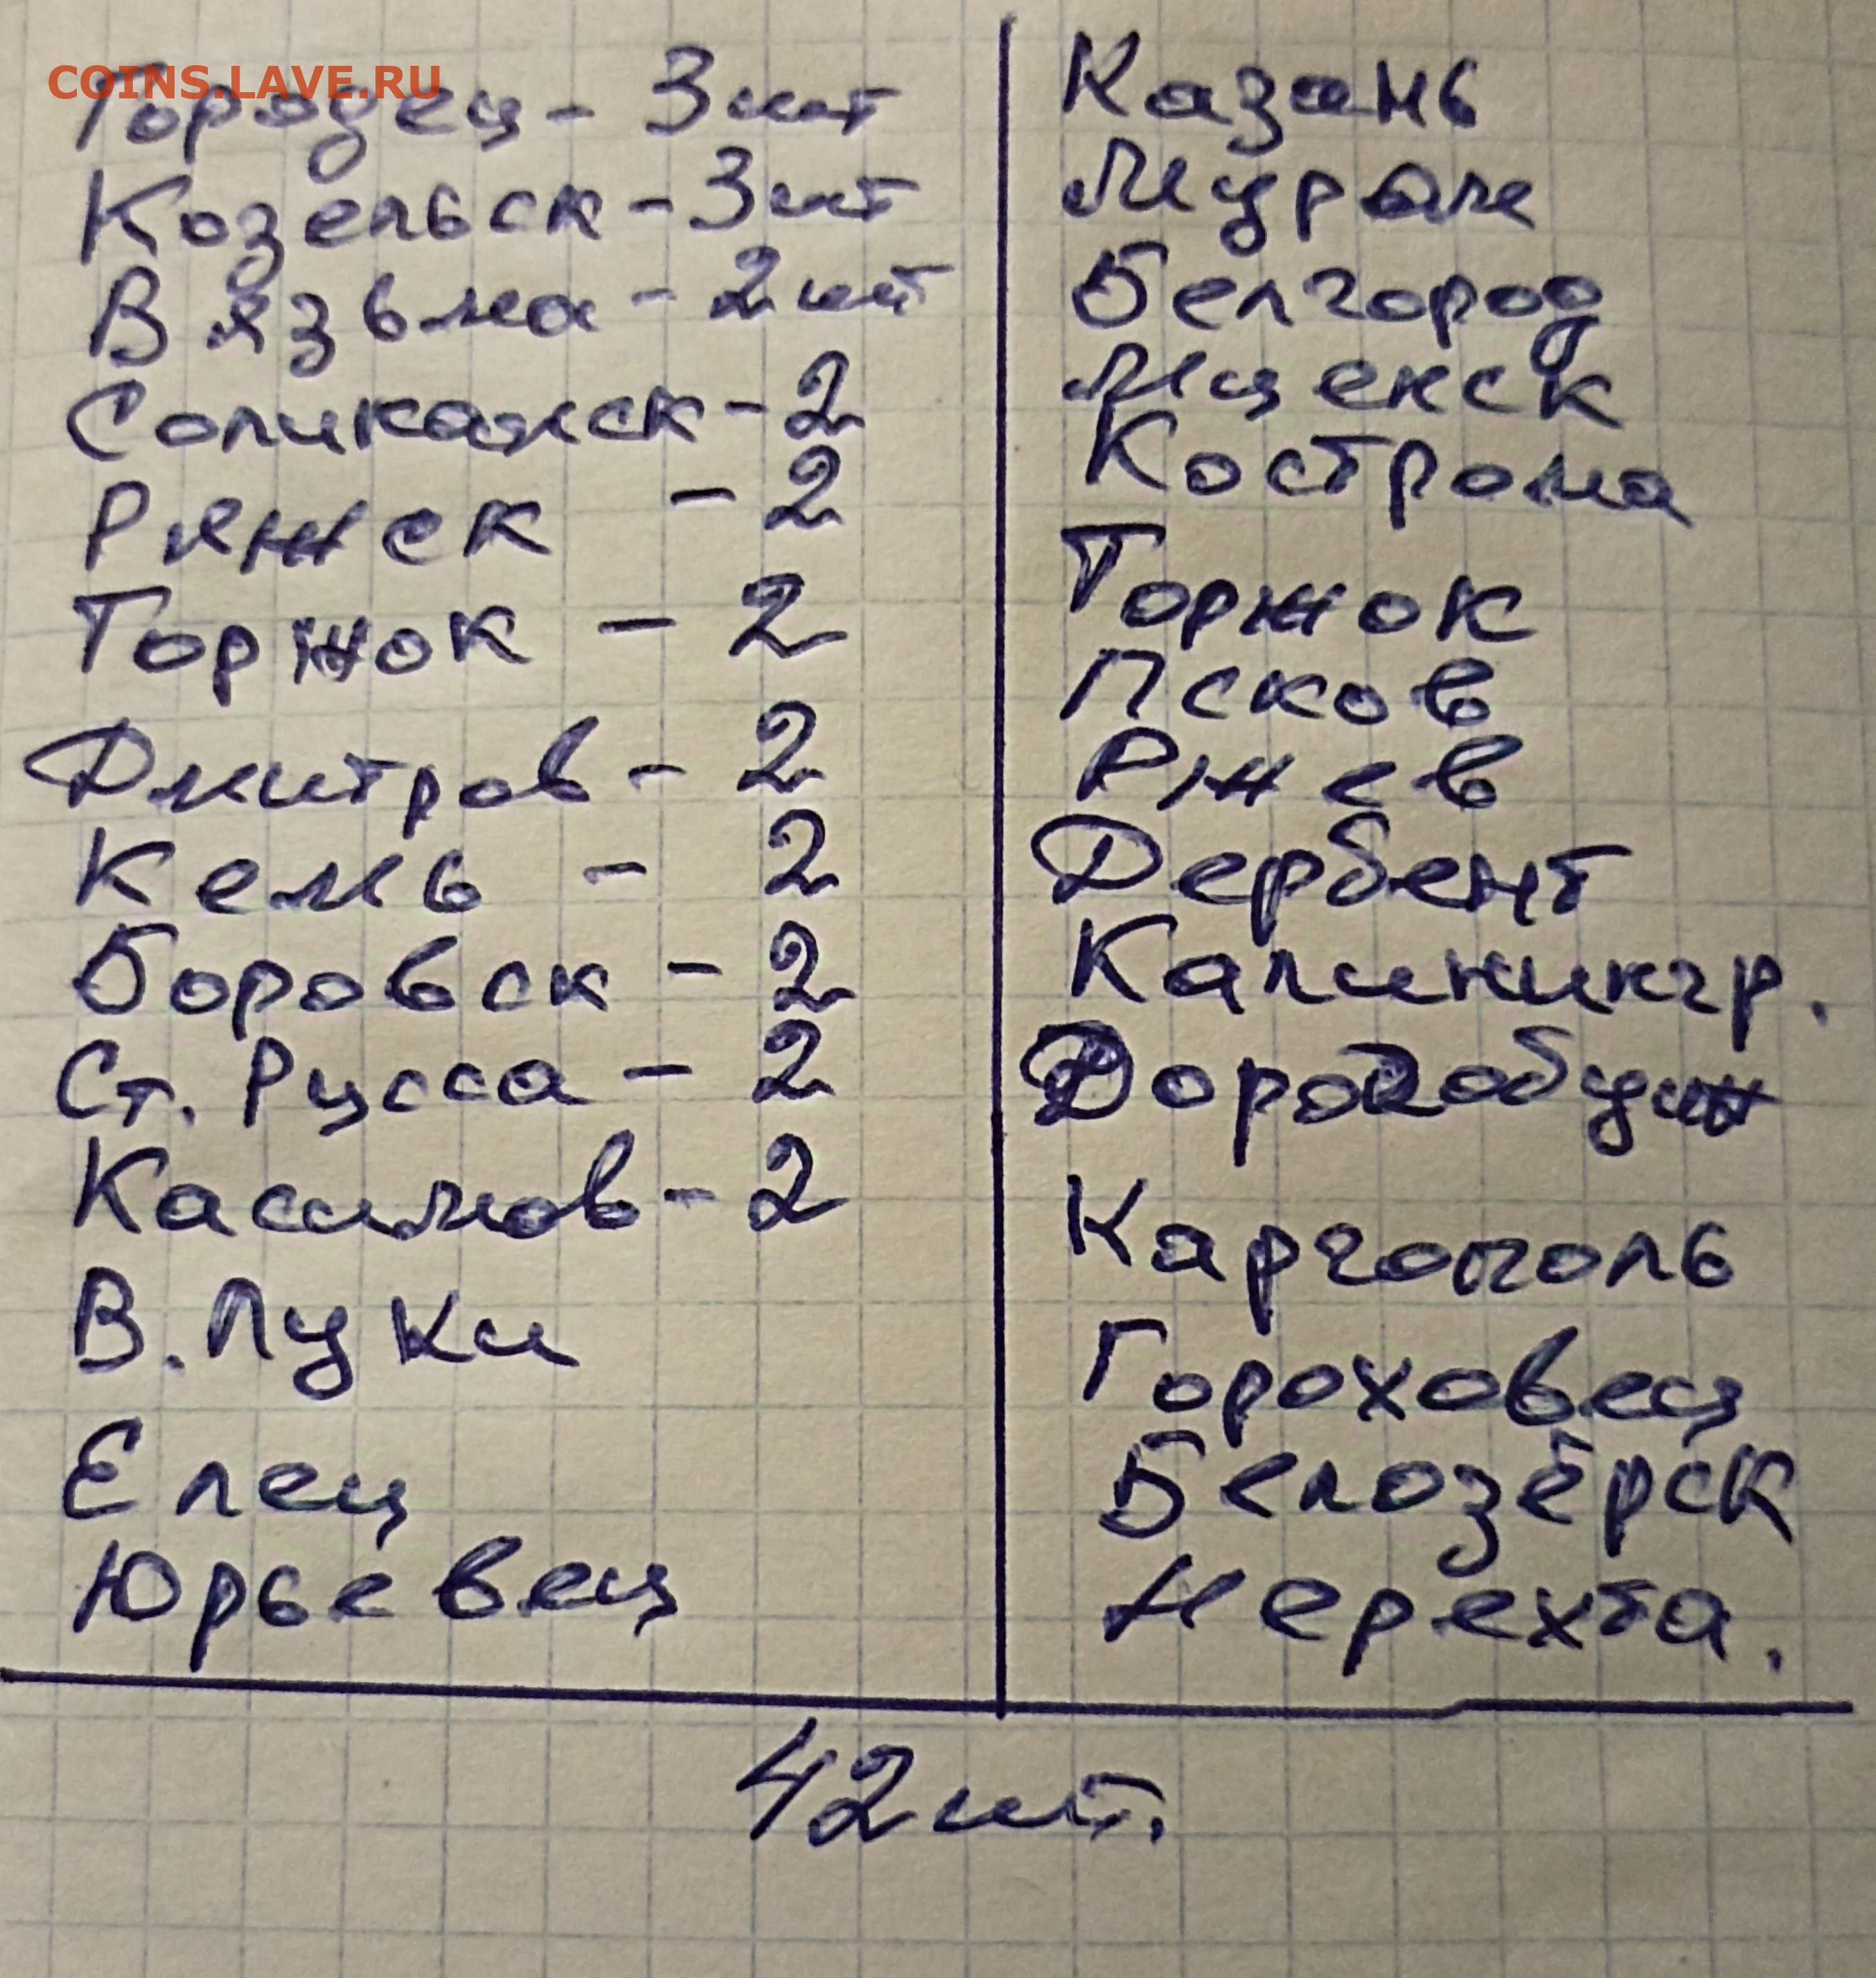 COINS.LAVE.RU
Городец - 3 шт
Козельск - 3 шт
Вязьма - 2 шт
Соликамск - 2
Ряжск - 2
Торжок - 2
Дмитров - 2
Кемь - 2
Боровск - 2
Ст. Русса - 2
Касимов - 2
В. Луки
Елец
Юрьевец
Казань
Муром
Белгород
Мценск
Кострома
Торжок
Псков
Ржев
Дербент
Калинингр.
Дорогобуж
Каргополь
Гороховец
Белозёрск
Нерехта.
42 шт.